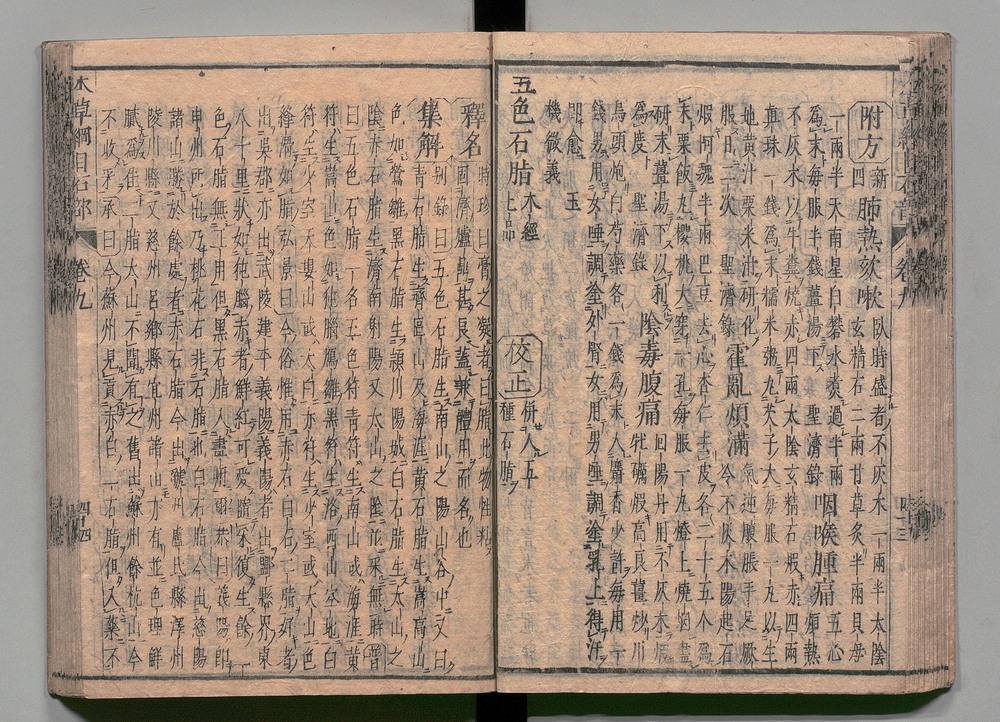 附方 新四 肺熱欬嗽 臥時盛者不灰木一兩半太陰
玄精石二兩甘草炙半兩貝母
一兩半天南星白礬水煑過半兩
為末每服半錢薑湯下 聖濟錄 咽喉腫痛 五心煩熱
不灰木以牛糞燒赤四兩太陰玄精石煅赤四兩
真珠一錢為末糯米粥丸芡子大每服一丸以生
地黃汁粟米泔研化
服日二次 聖濟錄 霍亂煩滿 氣逆腹脹手足厥
冷不灰木陽起石
煅阿魏半兩巴豆去心杏仁去皮各二十五人為
末粟飯丸櫻桃大穿一孔每服一丸燈上燒烟盡
研末薑湯下以利
為度 聖濟錄 陰毒腹痛 回陽丹用不灰木煅
牡礪煅高良薑炒川
烏頭炮白芍藥各一錢為末入麝香少許每用一
錢男用女唾調塗外腎女用男唾調塗乳上得汗
即愈 玉
機微義
五色石脂 本經上品 校正 併入五種石脂
釋名 時珍曰膏之凝者曰脂此物性粘
固濟爐鼎甚良蓋兼體用而名也
集解 別錄曰五色石脂生南山之陽山谷中又曰
青石脂生齊區山及海涯黃石脂生嵩高山
色如鶯雛黑石脂生潁川陽城白石脂生太山之
陰赤石脂生濟南射陽又太山之陰並采無時 普
曰五色石脂一名五色符青符生南山或海涯黃
符生嵩山色如㹠腦鴈雛黑符生洛西山空地白
符生少室天婁山或太山赤符生少室或太山色
絳滑如脂 弘景曰今俗惟用赤石白石二脂好者
出吳郡亦出武陵建平義陽義陽者出鄳縣界東
八十里狀如㹠腦赤者鮮紅可愛隨采復生餘
色石脂無正用但黑石脂入畫用爾 恭曰義陽即
申州所出乃桃花石非石脂也白石脂今出慈州
諸山勝於餘處者赤石脂今出虢州盧氏縣澤州
陵川縣又慈州呂鄉縣宜州諸山亦有並色理鮮
膩為佳二脂太山不聞有之舊出蘇州餘杭山今
不收采 承曰今蘇州見貢赤白二石脂但入藥不
本草綱目石部 卷九 四十四